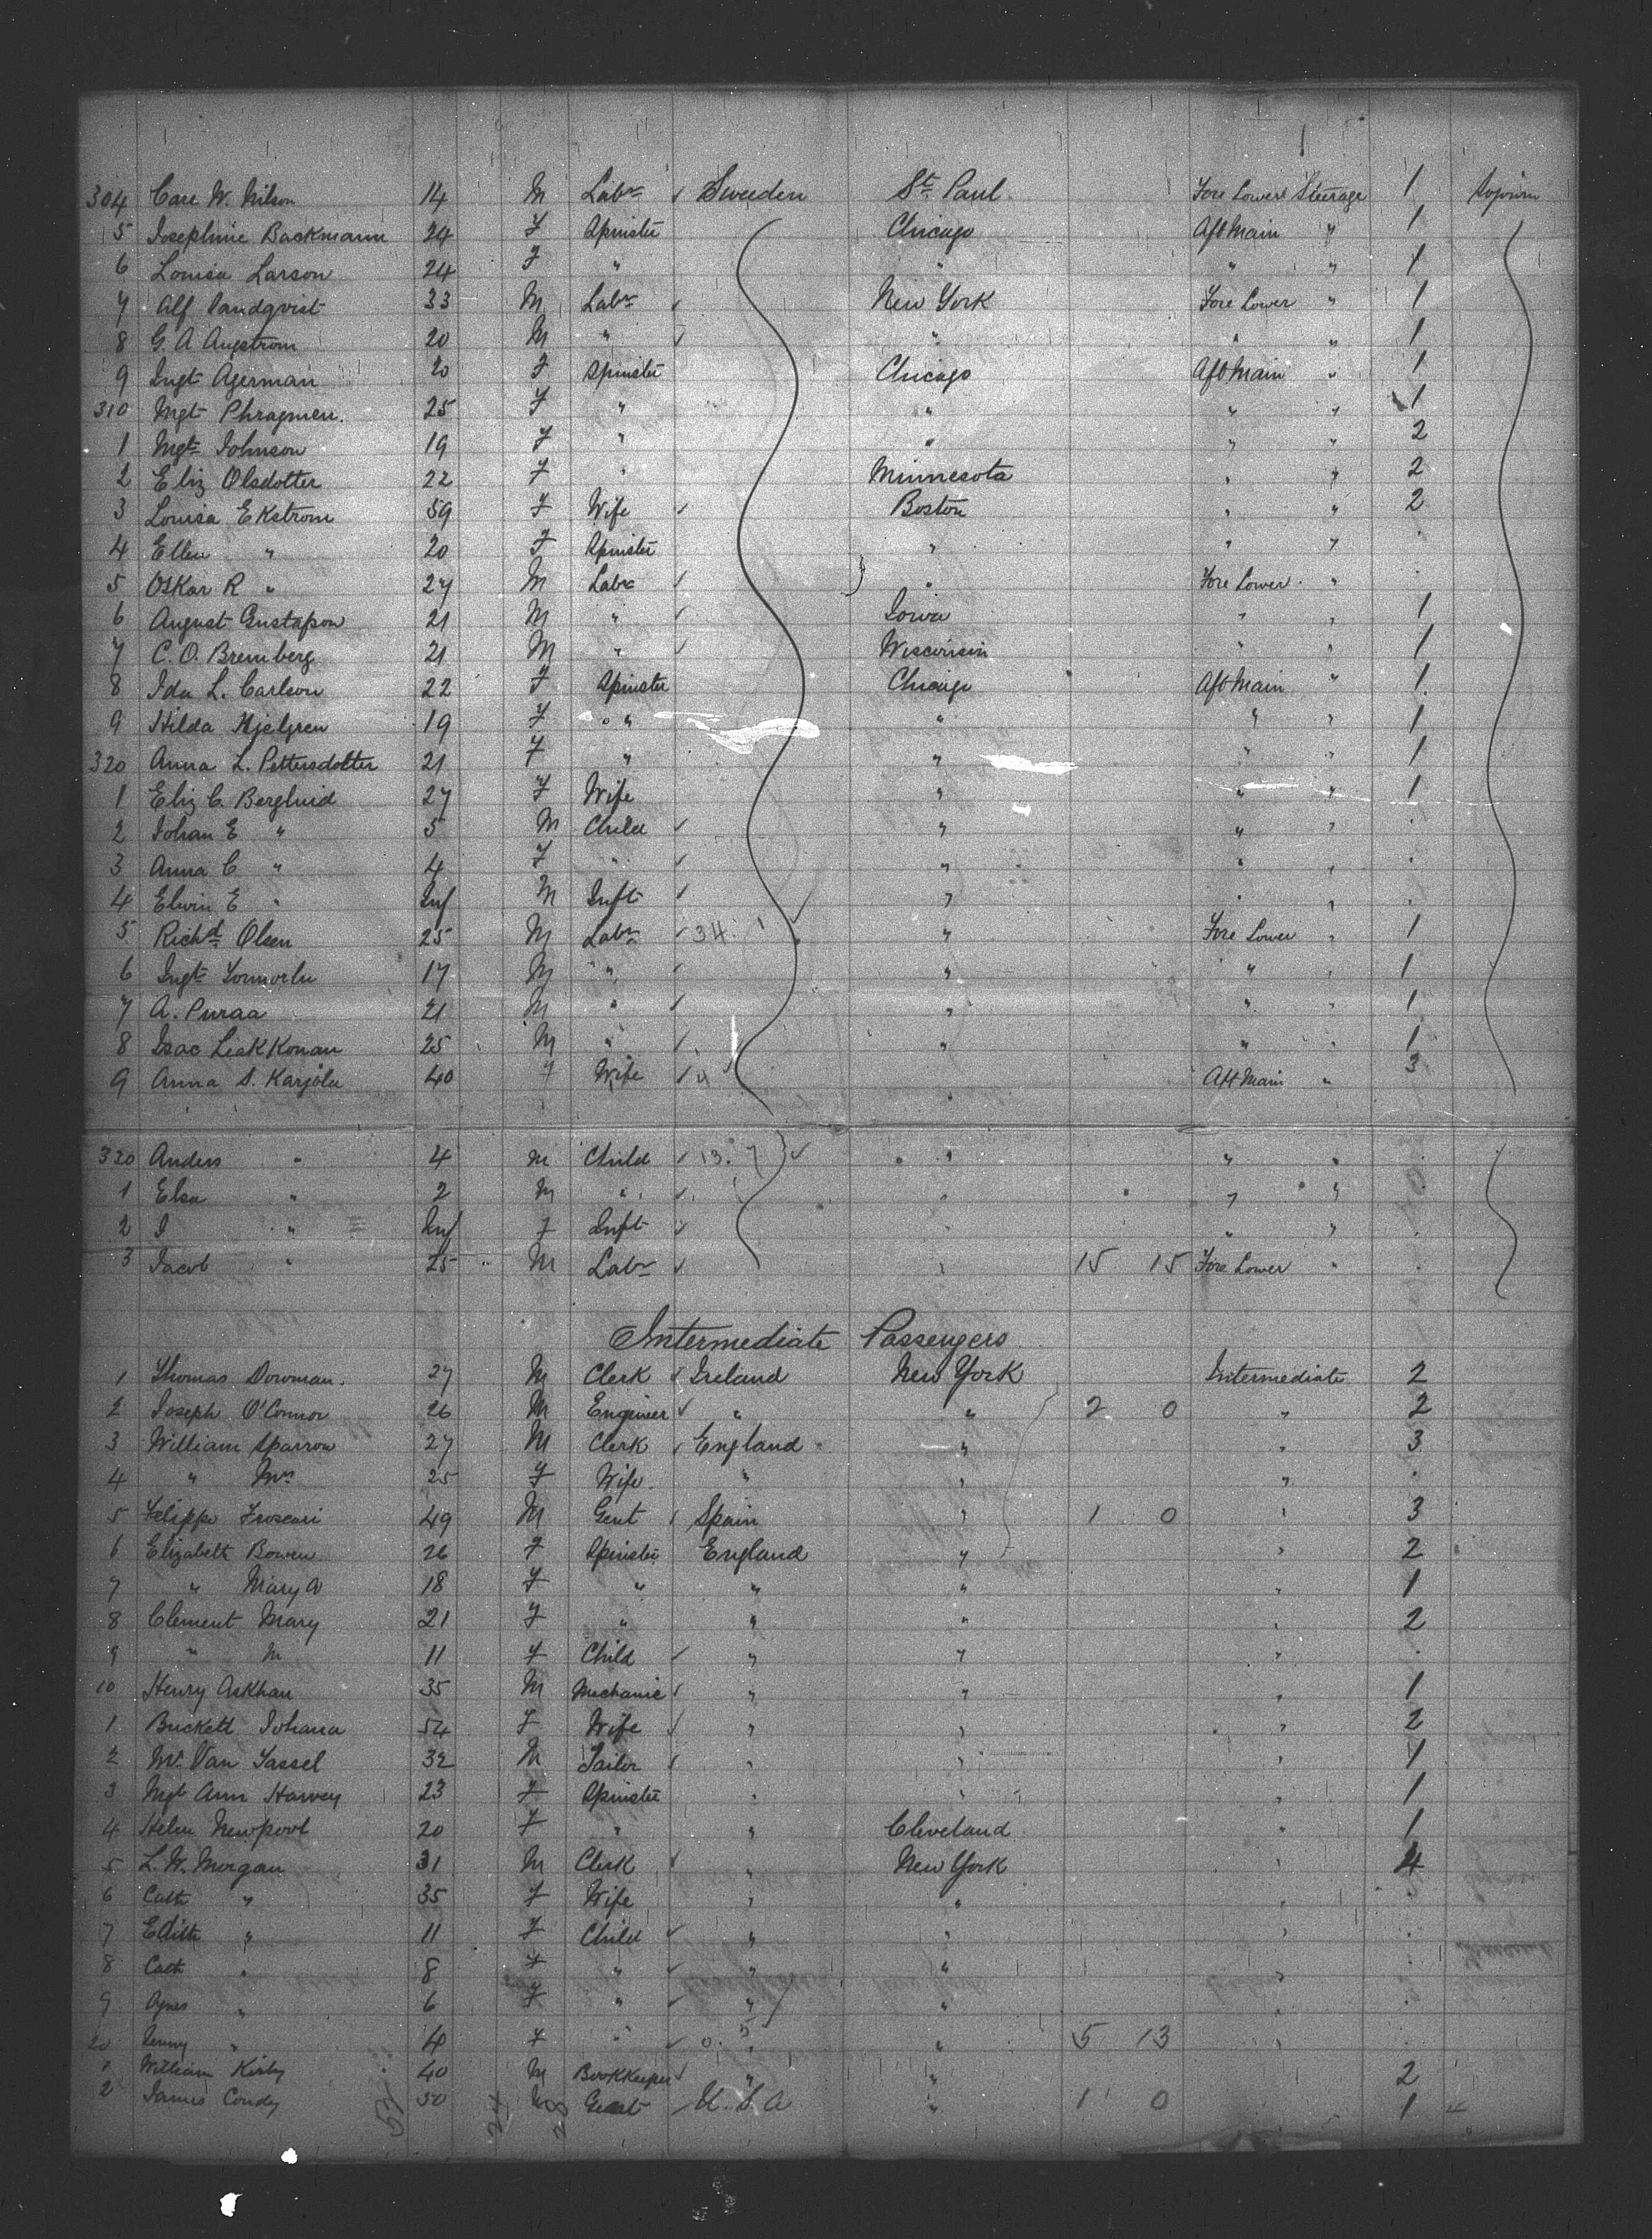 304 Carl W. Nilson 14 M Labr ✓ Sweeden St. Paul Fore Lower Steerage 1 Sojourn
5 Josephine Backmann 24 F Spinster Chicago Aft Main " 1
6 Louisa Larson 24 F " " " " 1
7 Alf Sandqvist 33 M Labr ✓ New York Fore Lower " 1
8 G. A Angstrom 20 M " ✓ " " " 1
9 Ingt Agerman 20 F Spinster Chicago Aft Main " 1
310 Mgt Phragmen. 25 F " " " " 1
1 Mgt Johnson 19 F " " " " 2
2 Eliz Olsdotter 22 F " Minnesota " " 2
3 Louisa Ekstrom 59 F Wife ✓ Boston " " 2
4 Ellen " 20 F Spinster " " "
5 Oskar R " 27 M Labr ✓ " Fore Lower "
6 August Gustafson 21 M " ✓ Iowa " " 1
7 C. O. Bremberg 21 M " ✓ Wisconsin " " 1
8 Ida L. Carlson 22 F Spinster Chicago Aft Main " 1
9 Hilda Hjelgren 19 F " " " " 1
320 Anna L. Pettersdotter 21 F " " " " 1
1 Eliz C. Berglund 27 F Wife " " " 1
2 Johan E " 5 M Child ✓ " " "
3 Anna C " 4 F " ✓ " " "
4 Elwin E " Inf M Inft ✓ " " "
5 Richd Olsen 25 M Labr ✓ 34 " Fore Lower " 1
6 Ingt 17 M " ✓ " " " 1
7 A. Puraa 21 M " ✓ " " " 1
8 Isac Leskkonan 25 M " ✓ " " " 1
9 Anna S. Karjola 40 F Wife ✓ " Aft Main " 3
320 Anders " 4 M Child ✓ 13. 7 " " "
1 Elsa " 2 M " ✓ " " "
2 I " Inf F Inft ✓ " " "
3 Jacob " 25 M Labr ✓ " 15 15 Fore Lower "
Intermediate Passengers
1 Thomas Dowman. 27 M Clerk ✓ Ireland New York Intermediate 2
2 Joseph O'Connor 26 M Engineer ✓ " " 2 0 " 2
3 William Sparrow 27 M Clerk ✓ England " " 3
4 " Mrs 25 F Wife " " "
5 Felippo 49 M Gent ✓ Spain " 1 0 " 3
6 Elizabeth Bowen 26 F Spinster England " " 2
7 " Mary A 18 F " " " " 1
8 Clement Mary 21 F " " " " 2
9 " M 11 F Child ✓ " " "
10 Henry Askhan 35 M Mechanic ✓ " " " 1
1 Buckett Johana 54 F Wife ✓ " " " 2
2 Mr. Van Tassel 32 M Tailor ✓ " " " 1
3 Mgt Ann Harvey 23 F Spinster " " " 1
4 Helen Newpoot 20 F " " Cleveland " 1
5 L. W. Morgan 31 M Clerk ✓ " New York " 4
6 Cath " 35 F Wife " " "
7 Edith " 11 F Child ✓ " " "
8 Cath " 8 F " ✓ " " "
9 Agnes " 6 F " ✓ " " "
20 Jenny " 4 F " ✓ 0. 5 " 5 13 "
1 William Kirby 40 M Bookkeeper ✓ " " 2
2 James Condy 50 M Gent U. S. A " 1 0 1